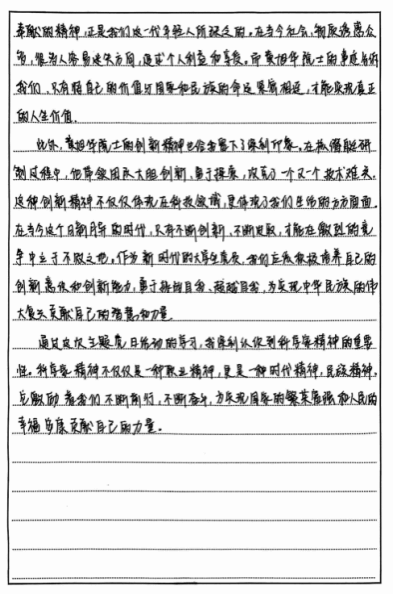 奉献的精神,正是我们这一代年轻人所缺乏的。在当今社会,物质诱惑众
多,很多人容易迷失方向,追求个人利益和享受。而黄旭华院士的事迹告诉
我们,只有将自己的价值与国家和民族的命运紧密相连,才能实现真正
的人生价值。
此外,黄旭华院士的创新精神也给我留下了深刻印象。在核潜艇研
制过程中,他带领团队大胆创新,勇于探索,攻克了一个又一个技术难关。
这种创新精神不仅仅体现在科技领域,更体现于我们生活的方方面面。
在当今这个日新月异的时代,只有不断创新,不断进取,才能在激烈的竞
争中立于不败之地。作为新时代的大学生党员,我们应该积极培养自己的
创新意识和创新能力,勇于挑战自我、超越自我,为实现中华民族的伟
大复兴贡献自己的智慧和力量。
通过这次主题党日活动的学习,我深刻认识到科学家精神的重要
性。科学家精神不仅仅是一种职业精神,更是一种时代精神,民族精神。
它激励着我们不断前行,不断奋斗,为实现国家的繁荣富强和人民的
幸福安康贡献自己的力量。